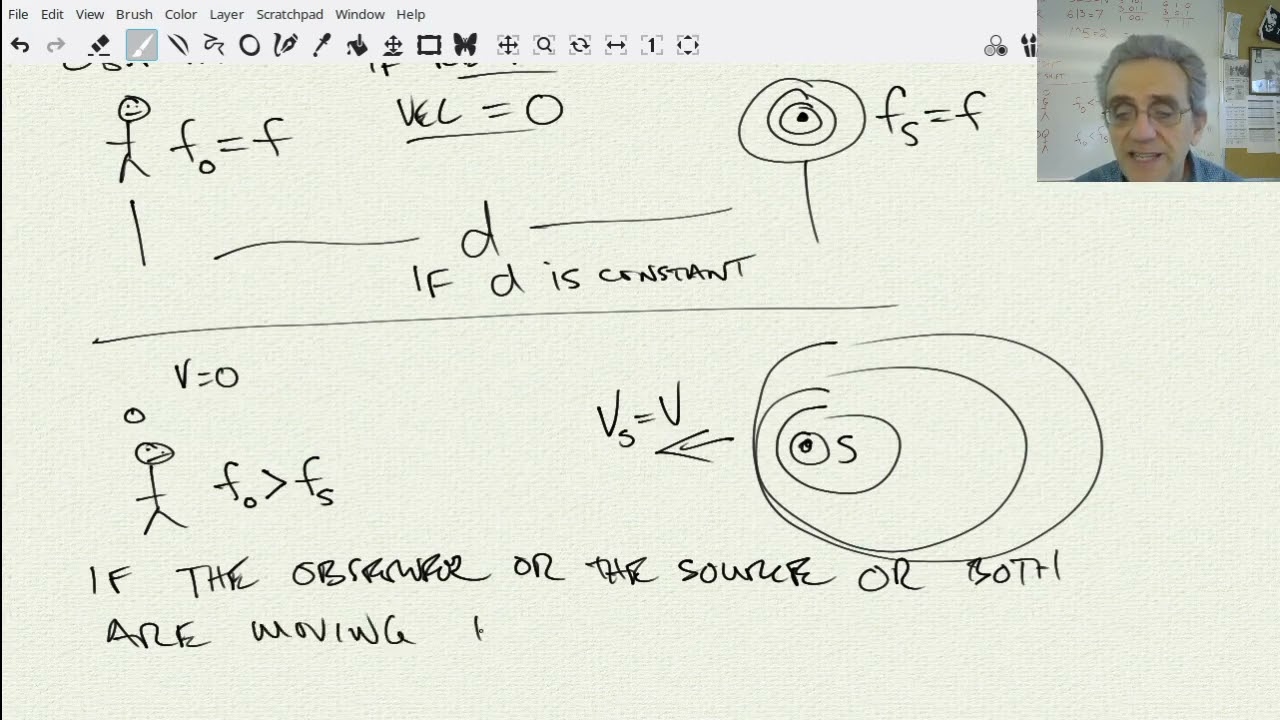 File Edit View Brush Color Layer Scratchpad Window Help
IF
VEL = 0
f₀ = f
fₛ = f
d
IF d IS CONSTANT
V=0
O
Vₛ = V
S
f₀ > fₛ
IF THE OBSERVER OR THE SOURCE OR BOTH
ARE MOVING